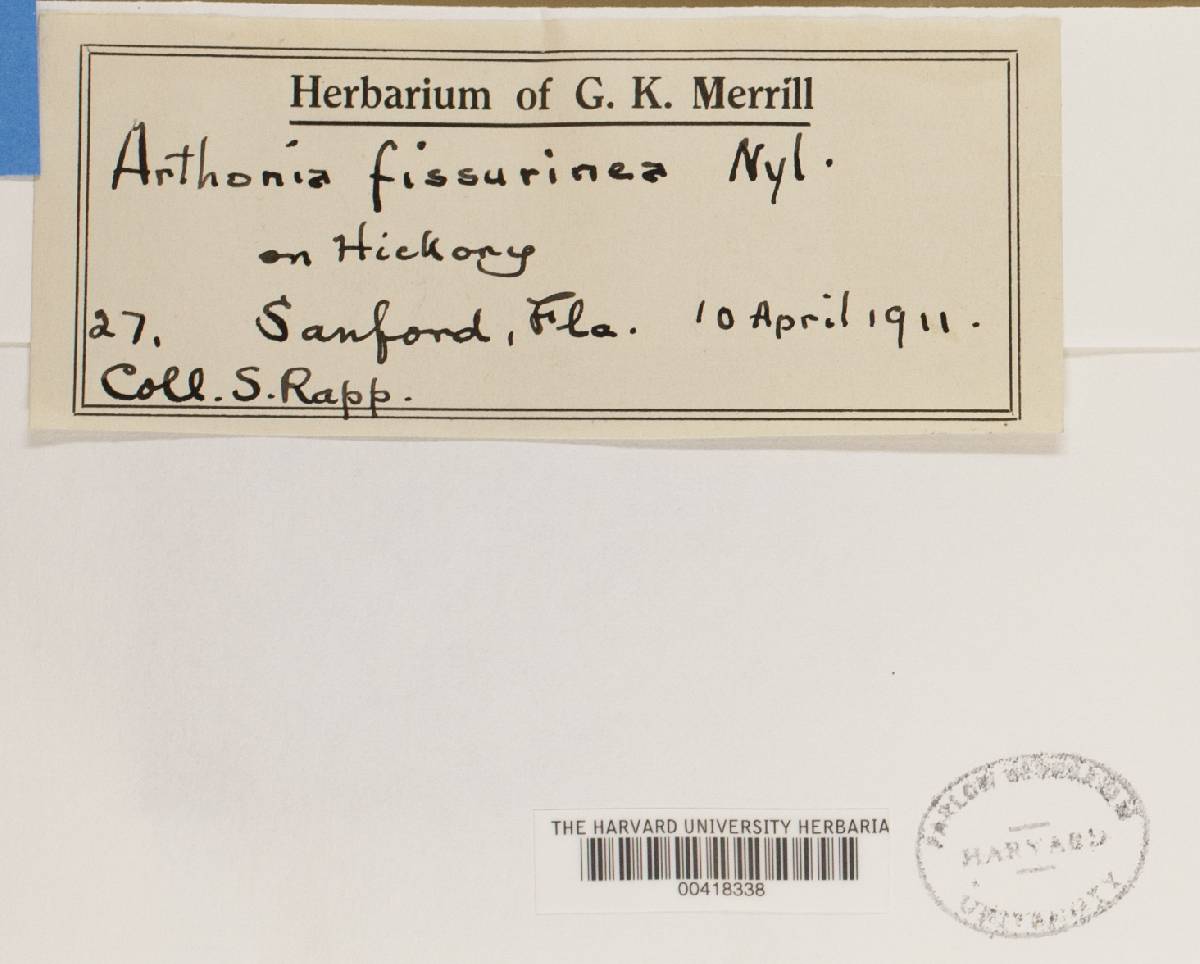 Herbarium of G. K. Merrill
Arthonia fissurinea Nyl.
on Hickory
27. Sanford, Fla. 10 April 1911.
Coll. S. Rapp.
THE HARVARD UNIVERSITY HERBARIA
00418338
FARLOW HERBARIUM
HARVARD
UNIVERSITY